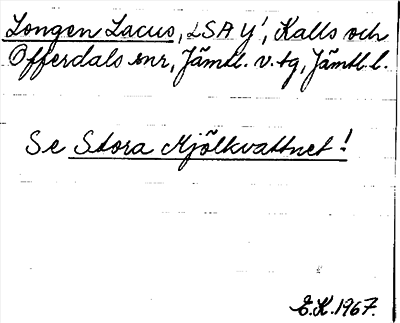 Longen Lacus, LSA Y', Kalls och
Offerdals snr, Jämtl. v. tg, Jämtl. l.
Se Stora Mjölkvattnet!
E.K. 1967.